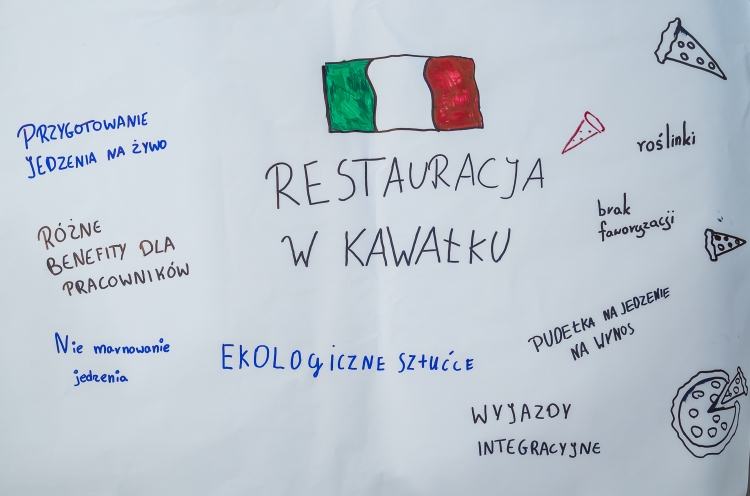 PRZYGOTOWANIE
JEDZENIA NA ŻYWO
RESTAURACJA
W KAWAŁKU
roślinki
brak
faworyzacji
RÓŻNE
BENEFITY DLA
PRACOWNIKÓW
PUDEŁKA NA JEDZENIE
NA WYNOS
Nie marnowanie
jedzenia
EKOLOgiCZNE SZtućCE
WYJAZDY
INTEGRACYJNE